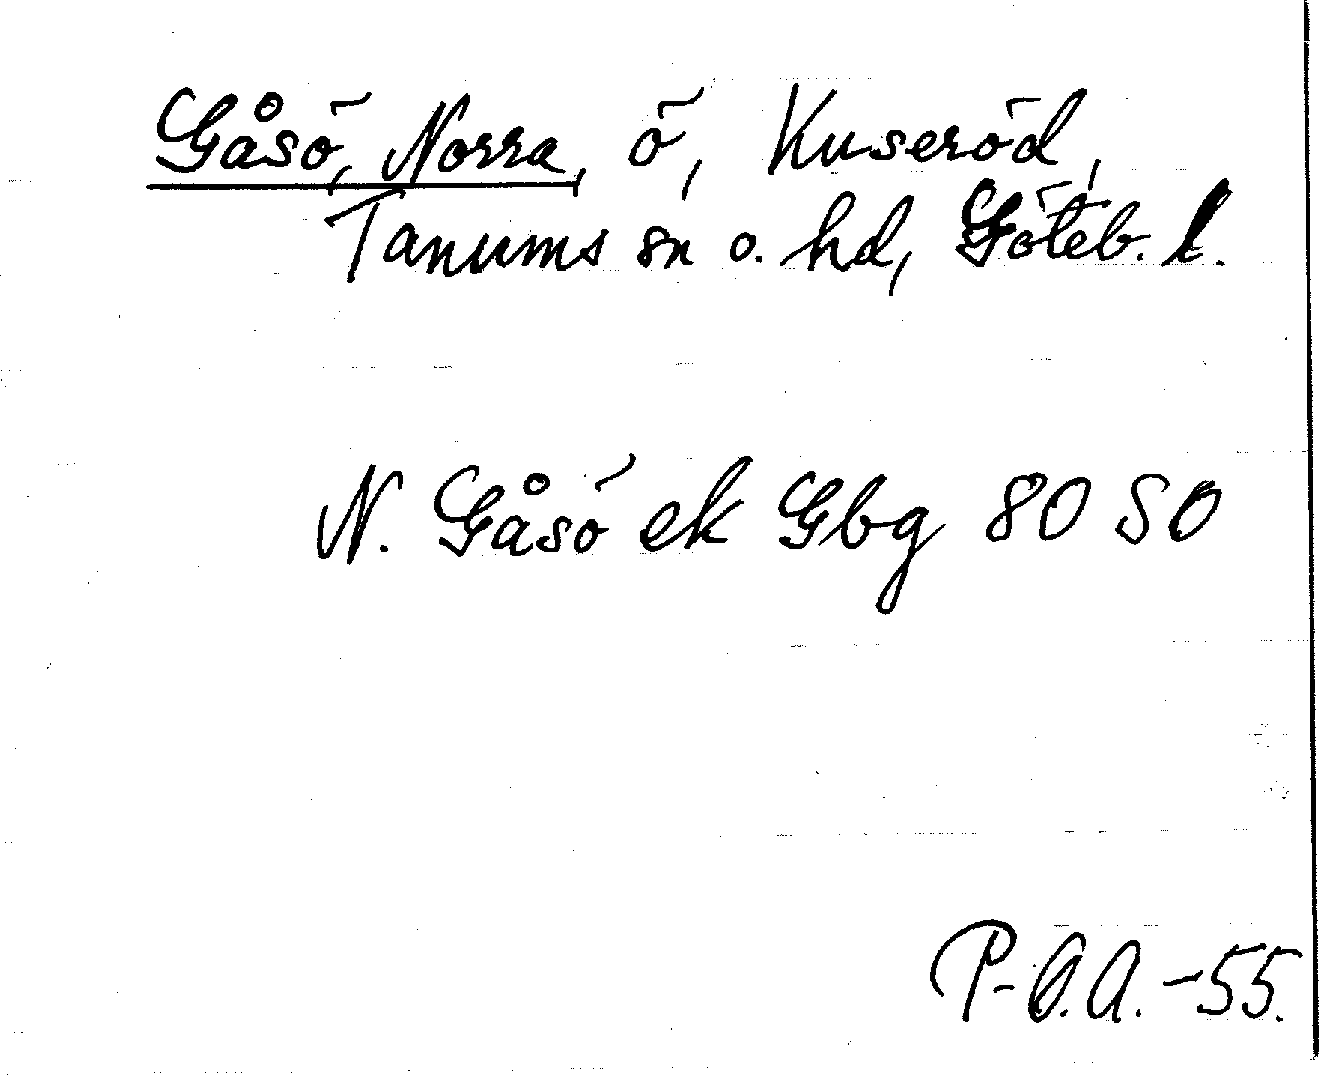 Gåsö, Norra, ö, Kuseröd,
Tanums sn o. hd, Göteb. l.
N. Gåsö ek Gbg 80 SO
P-O.A. -55.